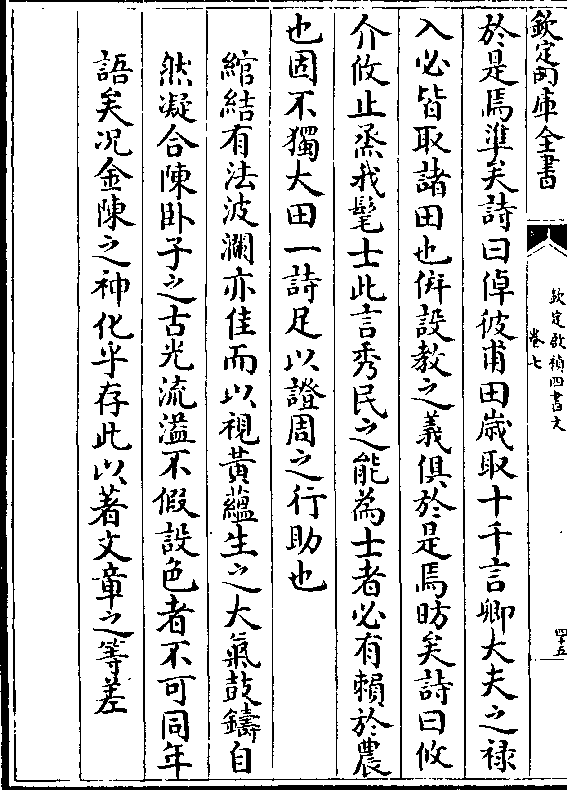 欽定四庫全書
欽定啟禎四書文
卷七
四十五
於是焉準矣詩曰倬彼甫田歲取十千言卿大夫之祿
入必皆取諸田也併設教之義俱於是焉昉矣詩曰攸
介攸止烝我髦士此言秀民之能為士者必有賴於農
也固不獨大田一詩足以證周之行助也
綰結有法波瀾亦佳而以視黃蘊生之大氣鼓鑄自
然凝合陳卧子之古光流溢不假設色者不可同年
語矣况金陳之神化乎存此以著文章之等差